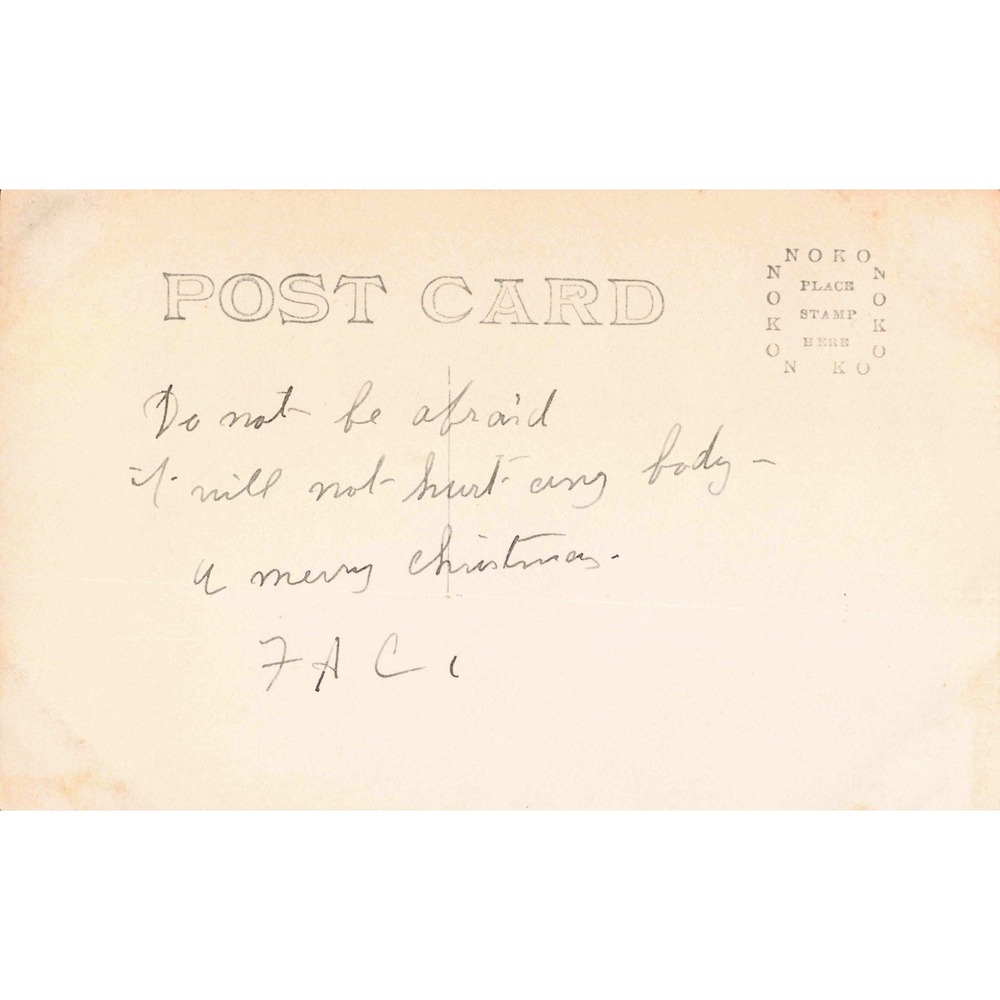 POST CARD
NOKO
NOKO
NOKO
N KO
PLACE
STAMP
HERE
Do not be afraid
it will not hurt any body —
a merry christmas.
F A C